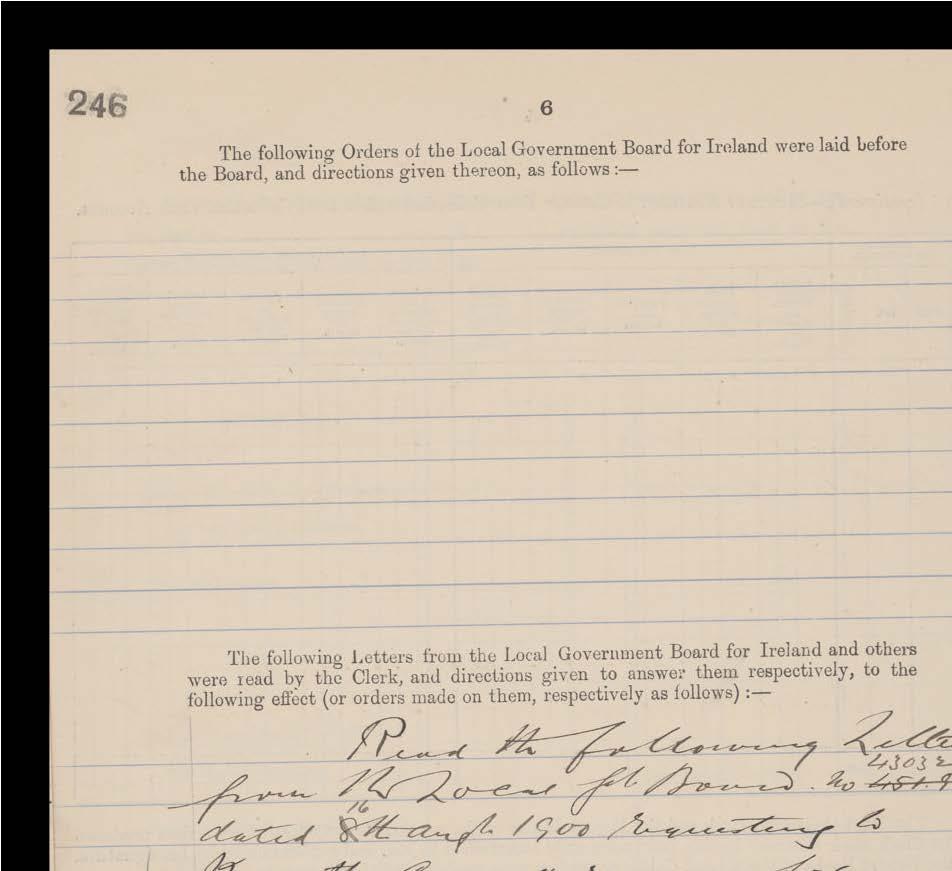 246
6
The following Orders of the Local Government Board for Ireland were laid before
the Board, and directions given thereon, as follows:—
The following Letters from the Local Government Board for Ireland and others
were read by the Clerk, and directions given to answer them respectively, to the
following effect (or orders made on them, respectively as follows):—
Read the following Lette
43032
from the Local Gt Board. No
16
dated 8th Augt 1900 requesting to